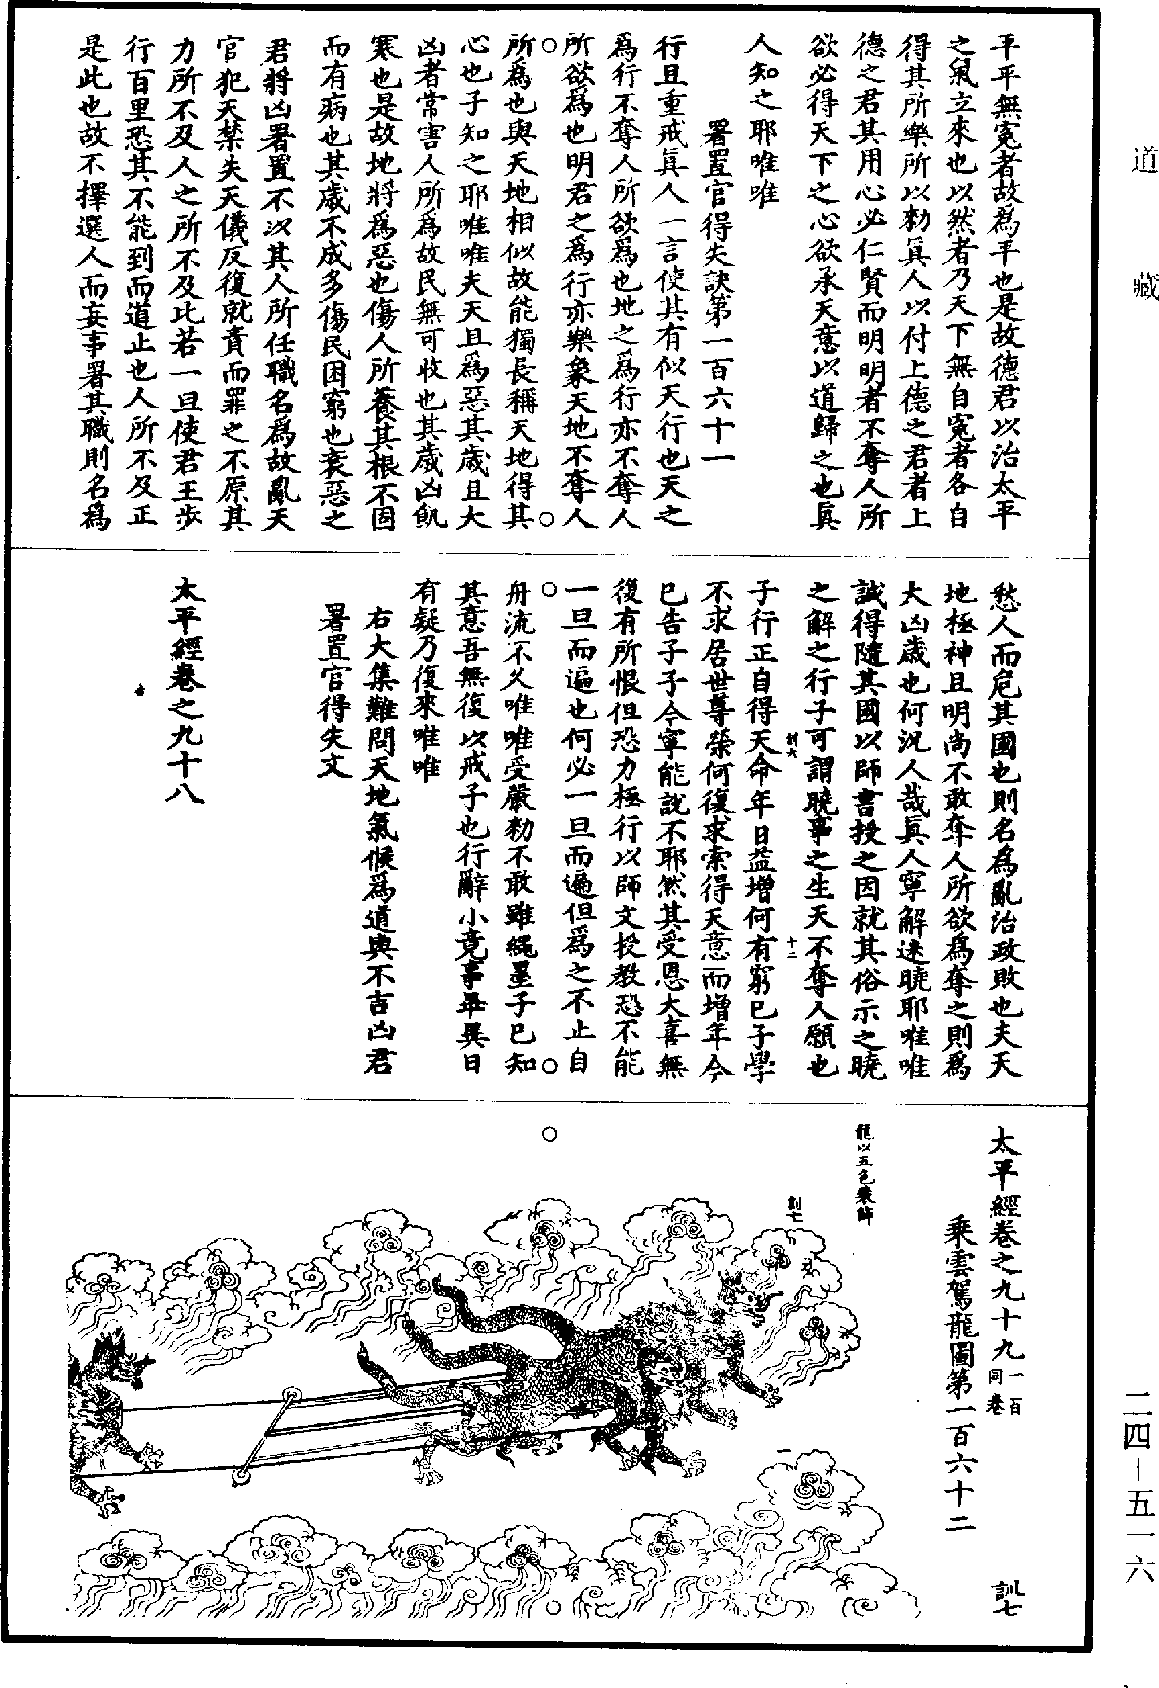 道藏
二四－五一六
平平無冤者故為平也是故德君以治太平
之氣立來也以然者乃天下無自冤者各自
得其所樂所以勑真人以付上德之君者上
德之君其用心必仁賢而明明者不奪人所
欲必得天下之心欲承天意以道歸之也真
人知之耶唯唯
署置官得失訣第一百六十一
行且重戒真人一言使其有似天行也天之
為行不奪人所欲為也地之為行亦不奪人
所欲為也明君之為行亦樂象天地不奪人
所為也與天地相似故能獨長稱天地得其
心也子知之耶唯唯夫天且為惡其歲且大
凶者常害人所為故民無可收也其歲凶飢
寒也是故地將為惡也傷人所養其根不固
而有病也其歲不成多傷民困窮也衰惡之
君將凶署置不以其人所任職名為故亂天
官犯天禁失天儀反復就責而罪之不原其
力所不及人之所不及此若一旦使君王步
行百里恐其不能到而道止也人所不及正
是此也故不擇選人而妄事署其職則名為
愁人而危其國也則名為亂治政敗也夫天
地極神且明尚不敢奪人所欲為奪之則為
大凶歲也何況人哉真人寧解迷曉耶唯唯
誠得隨其國以師書授之因就其俗示之曉
之解之行子可謂曉事之生天不奪人願也
訓六
十二
子行正自得天命年日益增何有窮已子學
不求居世尊榮何復求索得天意而增年今
已告子子今寧能說不耶然其受恩大喜無
復有所恨但恐力極行以師文授教恐不能
一旦而遍也何必一旦而遍但為之不止自
舟流不久唯唯受嚴勑不敢雖繩墨子已知
其意吾無復以戒子也行辭小竟事畢異日
有疑乃復來唯唯
右大集難問天地氣候為道與不吉凶君
署置官得失文
太平經卷之九十八
太平經卷之九十九一百同卷
訓七
乘雲駕龍圖第一百六十二
龍以五色裝飾
訓七